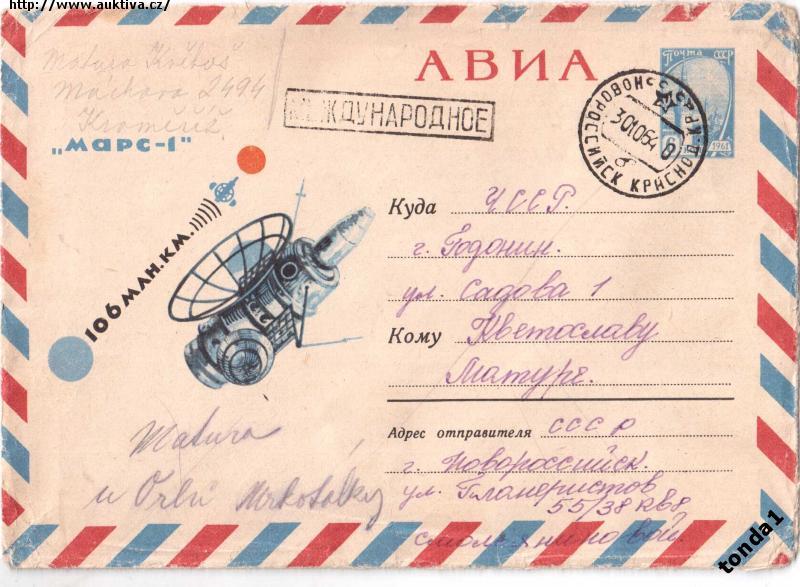 http://www.auktiva.cz/
Matura Květoš
Máchova 2494
Kroměříž
АВИА
МЕЖДУНАРОДНОЕ
ПОЧТА СССР
1961
НОВОРОССИЙСК КРАСНОД. КР.
301064
"МАРС-1"
106 МЛН.КМ.
Куда ЧССР.
г. Годонин.
ул. Садова 1
Кому Кветославу
Матуре.
Адрес отправителя СССР
г. Новороссийск.
ул. Планеристов
55/38 кв8
Matura
u Orlů
tonda1